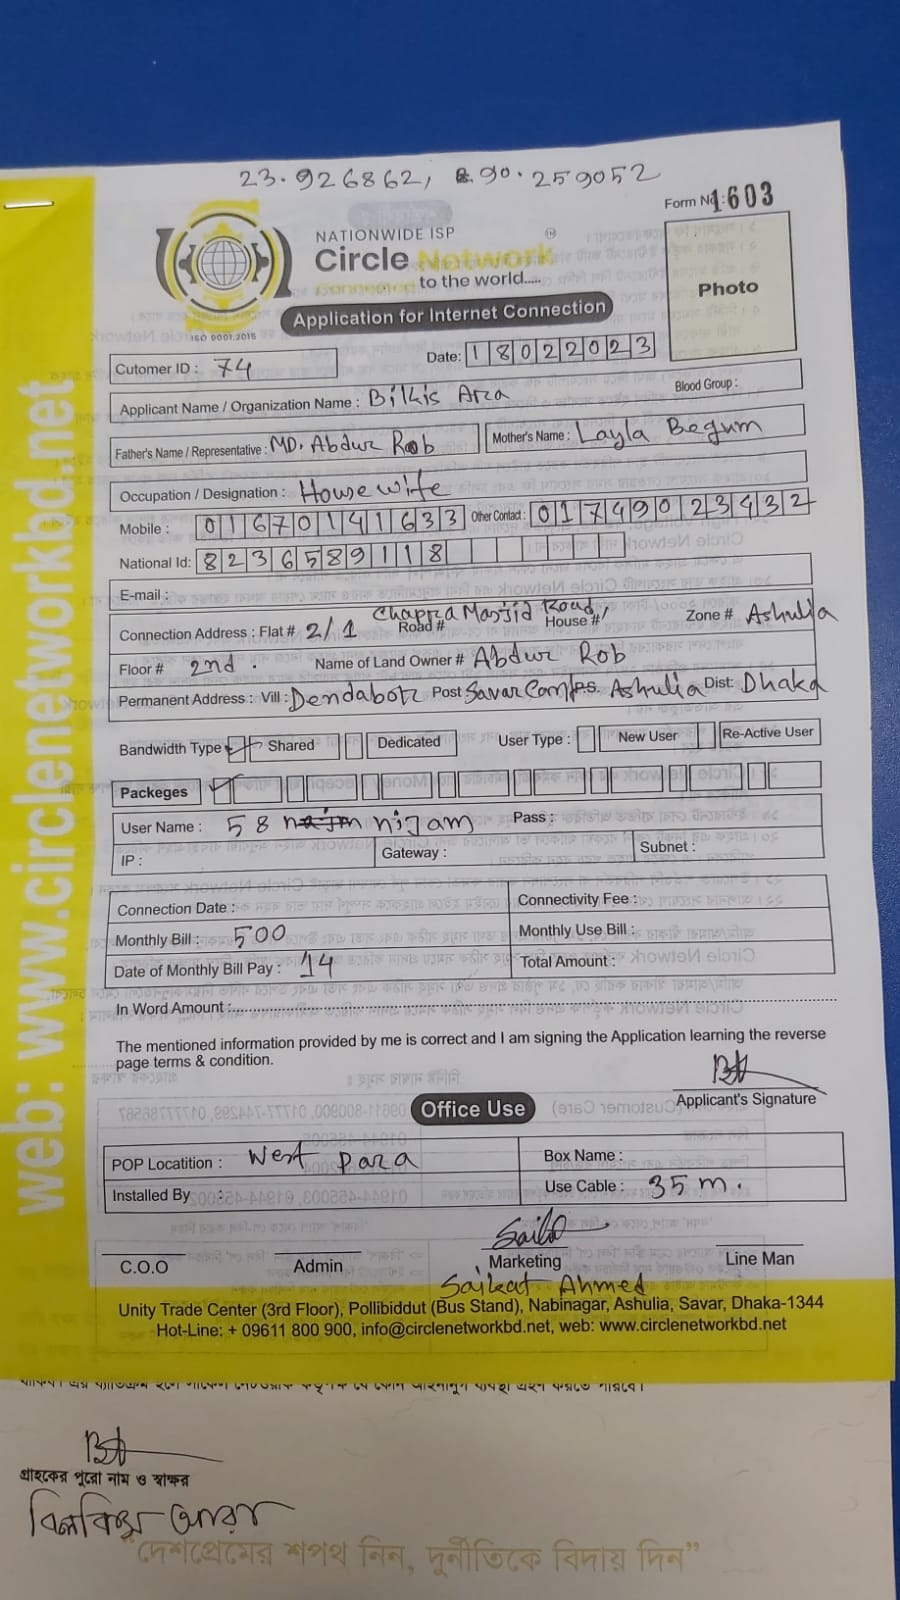 23.926862, 90.259052
Form No: 1603
NATIONWIDE ISP
Circle Network
to the world.....
ISO 9001:2015
Photo
Application for Internet Connection
Cutomer ID : 74
Date: 18022023
Applicant Name / Organization Name : Bilkis Ara
Blood Group :
Father's Name / Representative : MD. Abdur Rob
Mother's Name : Layla Begum
Occupation / Designation : House wife
Mobile : 01670141633 Other Contact : 01749023432
National Id: 8236589118
E-mail :
Connection Address : Flat # 2/1 Road # Chapra Masjid Road, House # Zone # Ashulia
Floor # 2nd. Name of Land Owner # Abdur Rob
Permanent Address : Vill : Dendabor Post Savar Cant P.S. Ashulia Dist: Dhaka
Bandwidth Type Shared Dedicated User Type : New User Re-Active User
Packeges
User Name : 58 nijam Pass :
IP : Gateway : Subnet :
Connection Date : Connectivity Fee :
Monthly Bill : 500 Monthly Use Bill :
Date of Monthly Bill Pay : 14 Total Amount :
In Word Amount :
The mentioned information provided by me is correct and I am signing the Application learning the reverse
page terms & condition.
Applicant's Signature
Office Use
POP Locatition : West para Box Name :
Installed By : Use Cable : 35 m.
C.O.O Admin Marketing Line Man
Saikat Ahmed
Unity Trade Center (3rd Floor), Pollibiddut (Bus Stand), Nabinagar, Ashulia, Savar, Dhaka-1344
Hot-Line: + 09611 800 900, info@circlenetworkbd.net, web: www.circlenetworkbd.net
web: www.circlenetworkbd.net
গ্রাহকের পুরো নাম ও স্বাক্ষর
বিলকিস আরা
"দেশপ্রেমের শপথ নিন, দুর্নীতিকে বিদায় দিন"